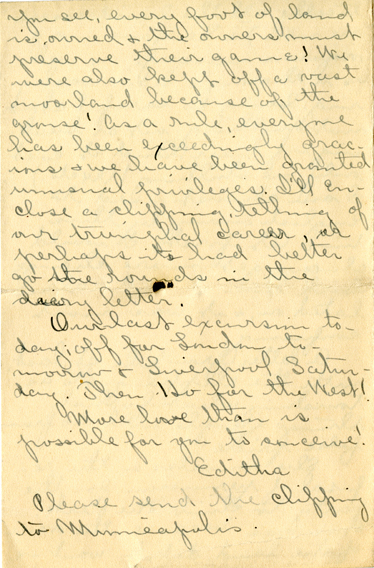 You see, every foot of land
is owned & the owners must
preserve their game! We
were also kept off a vast
moorland because of the
grouse! As a rule, everyone
has been exceedingly grac-
ious & we have been granted
unusual privileges. I'll en-
close a clipping telling of
our triumphal career, or
perhaps it had better
go the rounds in the
letter.
Our last excursion to-
day; off for London to-
morrow & Liverpool Satur-
day. Then, Ho for the West!
More love than is
possible for you to conceive!
Editha
Please send the clipping
to Minneapolis.